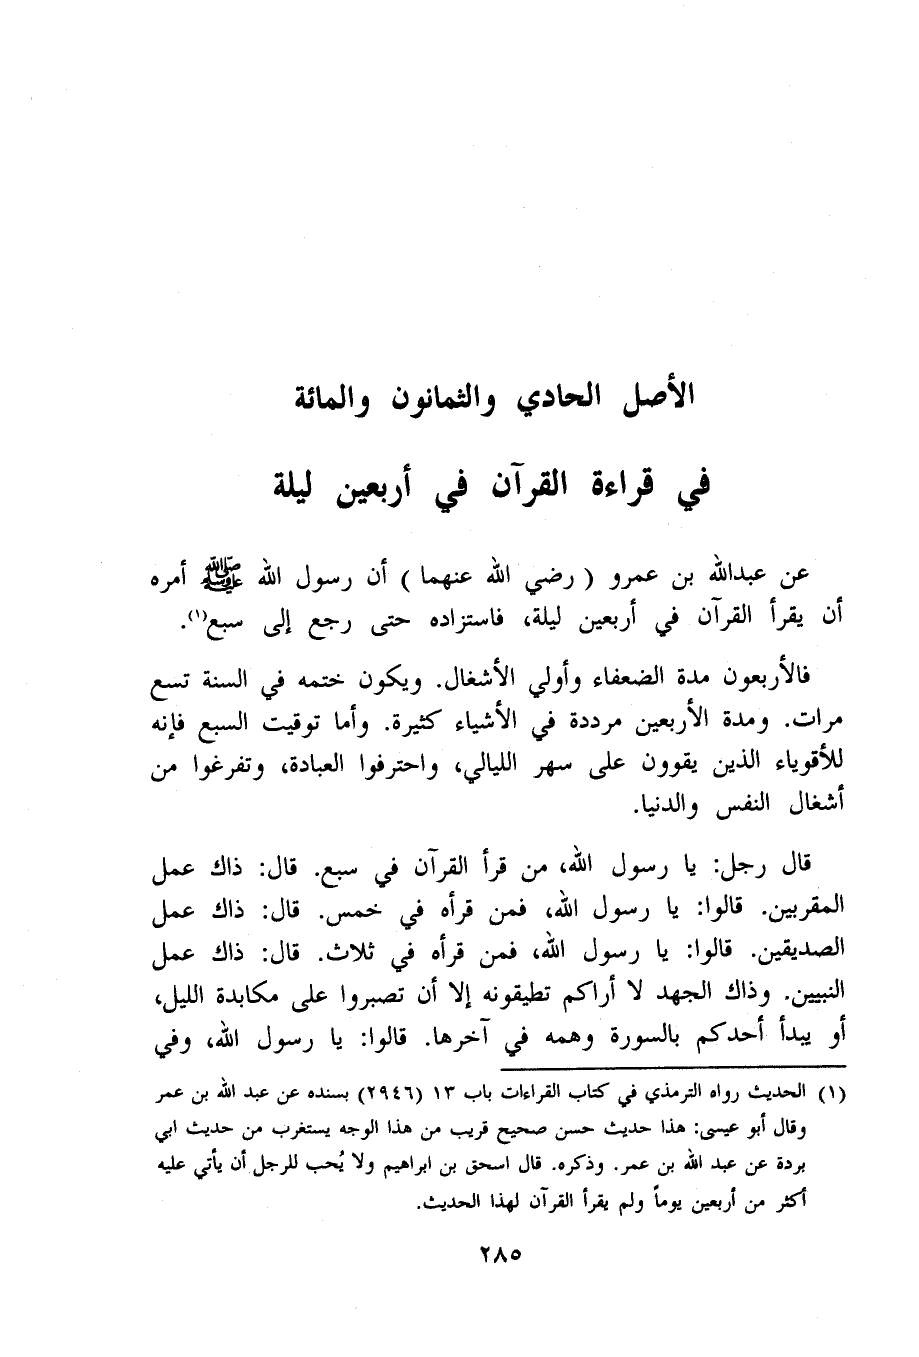 الأصل الحادي والثمانون والمائة
في قراءة القرآن في أربعين ليلة
عن عبدالله بن عمرو ( رضي الله عنهما ) أن رسول الله ﷺ أمره
أن يقرأ القرآن في أربعين ليلة، فاستزاده حتى رجع إلى سبع(١).
فالأربعون مدة الضعفاء وأولي الأشغال. ويكون ختمه في السنة تسع
مرات. ومدة الأربعين مرددة في الأشياء كثيرة. وأما توقيت السبع فإنه
للأقوياء الذين يقوون على سهر الليالي، واحترفوا العبادة، وتفرغوا من
أشغال النفس والدنيا.
قال رجل: يا رسول الله، من قرأ القرآن في سبع. قال: ذاك عمل
المقربين. قالوا: يا رسول الله، فمن قرأه في خمس. قال: ذاك عمل
الصديقين. قالوا: يا رسول الله، فمن قرأه في ثلاث. قال: ذاك عمل
النبيين. وذاك الجهد لا أراكم تطيقونه إلا أن تصبروا على مكابدة الليل،
أو يبدأ أحدكم بالسورة وهمه في آخرها. قالوا: يا رسول الله، وفي
(١) الحديث رواه الترمذي في كتاب القراءات باب ١٣ (٢٩٤٦) بسنده عن عبد الله بن عمر
وقال أبو عيسى: هذا حديث حسن صحيح قريب من هذا الوجه يستغرب من حديث ابي
بردة عن عبد الله بن عمر. وذكره. قال اسحق بن ابراهيم ولا يُحب للرجل أن يأتي عليه
أكثر من أربعين يوماً ولم يقرأ القرآن لهذا الحديث.
٢٨٥